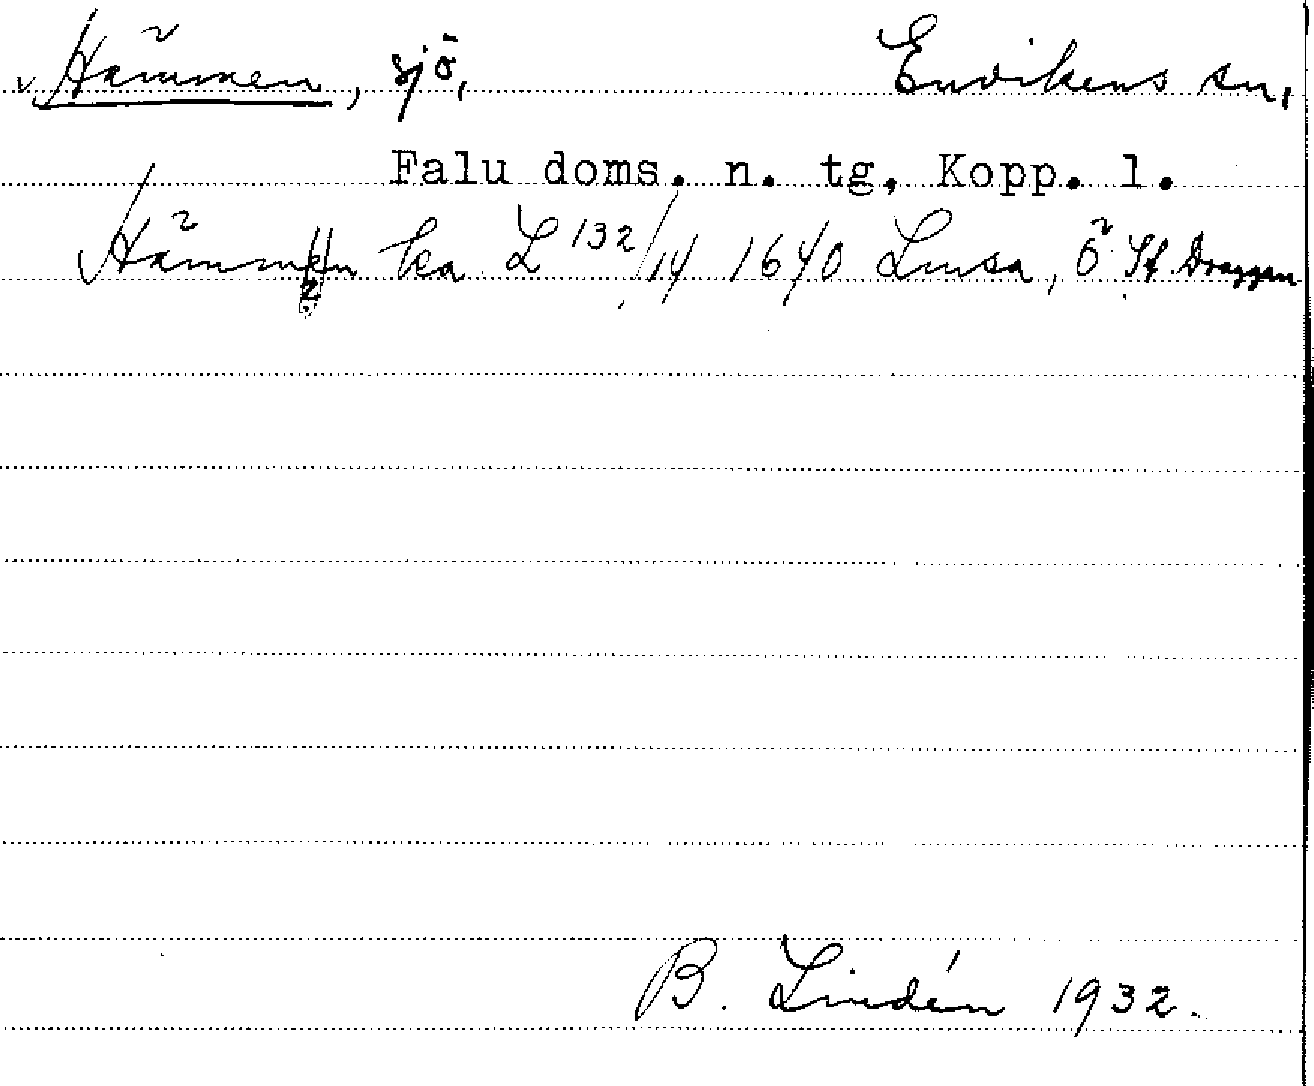 v. Hämmen, sjö, Envikens sn,
Falu doms. n. tg, Kopp. l.
Hämmen ka L 132/14 1640 Linsa, Ö Sf. Draggen
B. Lindén 1932.